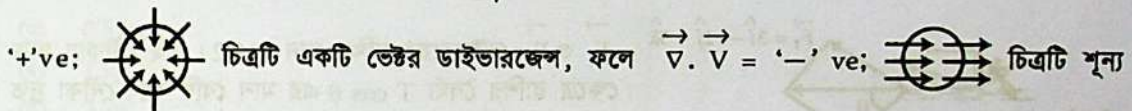 ‘+’ve; চিত্রটি একটি ভেক্টর ডাইভারজেন্স, ফলে ∇⃗. V⃗ = ‘–’ ve; চিত্রটি শূন্য